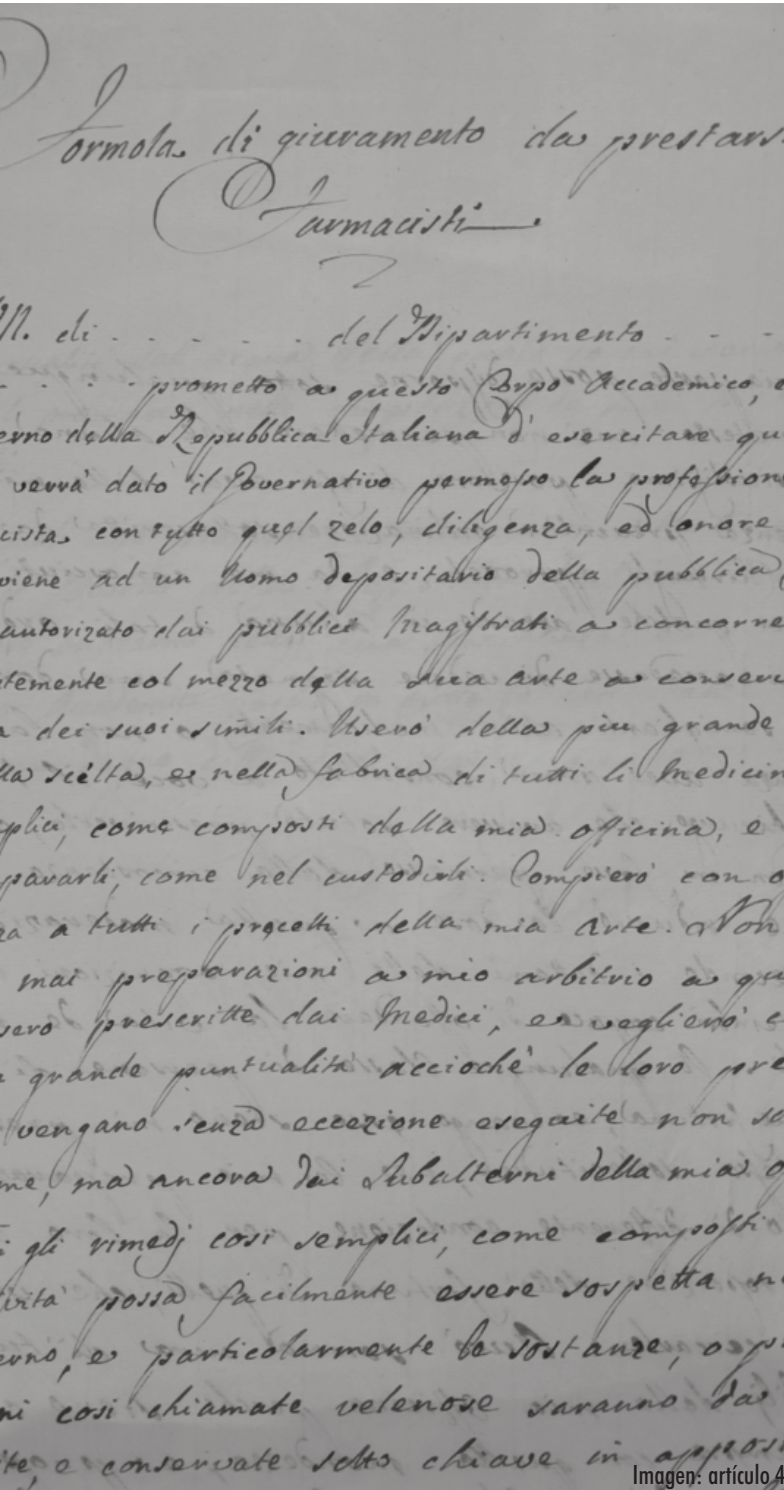 Formola di giuramento da prestars
Farmacisti
N. di . . . . . del Dipartimento . . .
. . . . prometto a questo Corpo Accademico, e
erno della Repubblica Italiana d'esercitare qu
verrà dato il Governativo permesso la profession
cista con tutto quel zelo, diligenza, ed onore
viene ad un Uomo depositario della pubblica
autorizato dai pubblici Magistrati a concorre
temente col mezzo della sua arte a conserv
a dei suoi simili. Userò della piu grande
lla scelta, e nella fabrica di tutti li Medicin
plici, come composti della mia officina, e
pararli, come nel custodirli. Compierò con
za a tutti i precetti della mia Arte. Non
mai preparazioni a mio arbitrio a qu
sero prescritte dai Medici, e veglierò c
grande puntualità acciochè le loro pre
vengano senza eccezione eseguite non so
me, ma ancora dai Subalterni della mia o
i gli rimedj cosi semplici, come composti
ività possa facilmente essere sospetta n
erno, e particolarmente le sostanze, o p
ni cosi chiamate velenose saranno da
ite, e conservate sotto chiave in apposi
Imagen: artículo 4